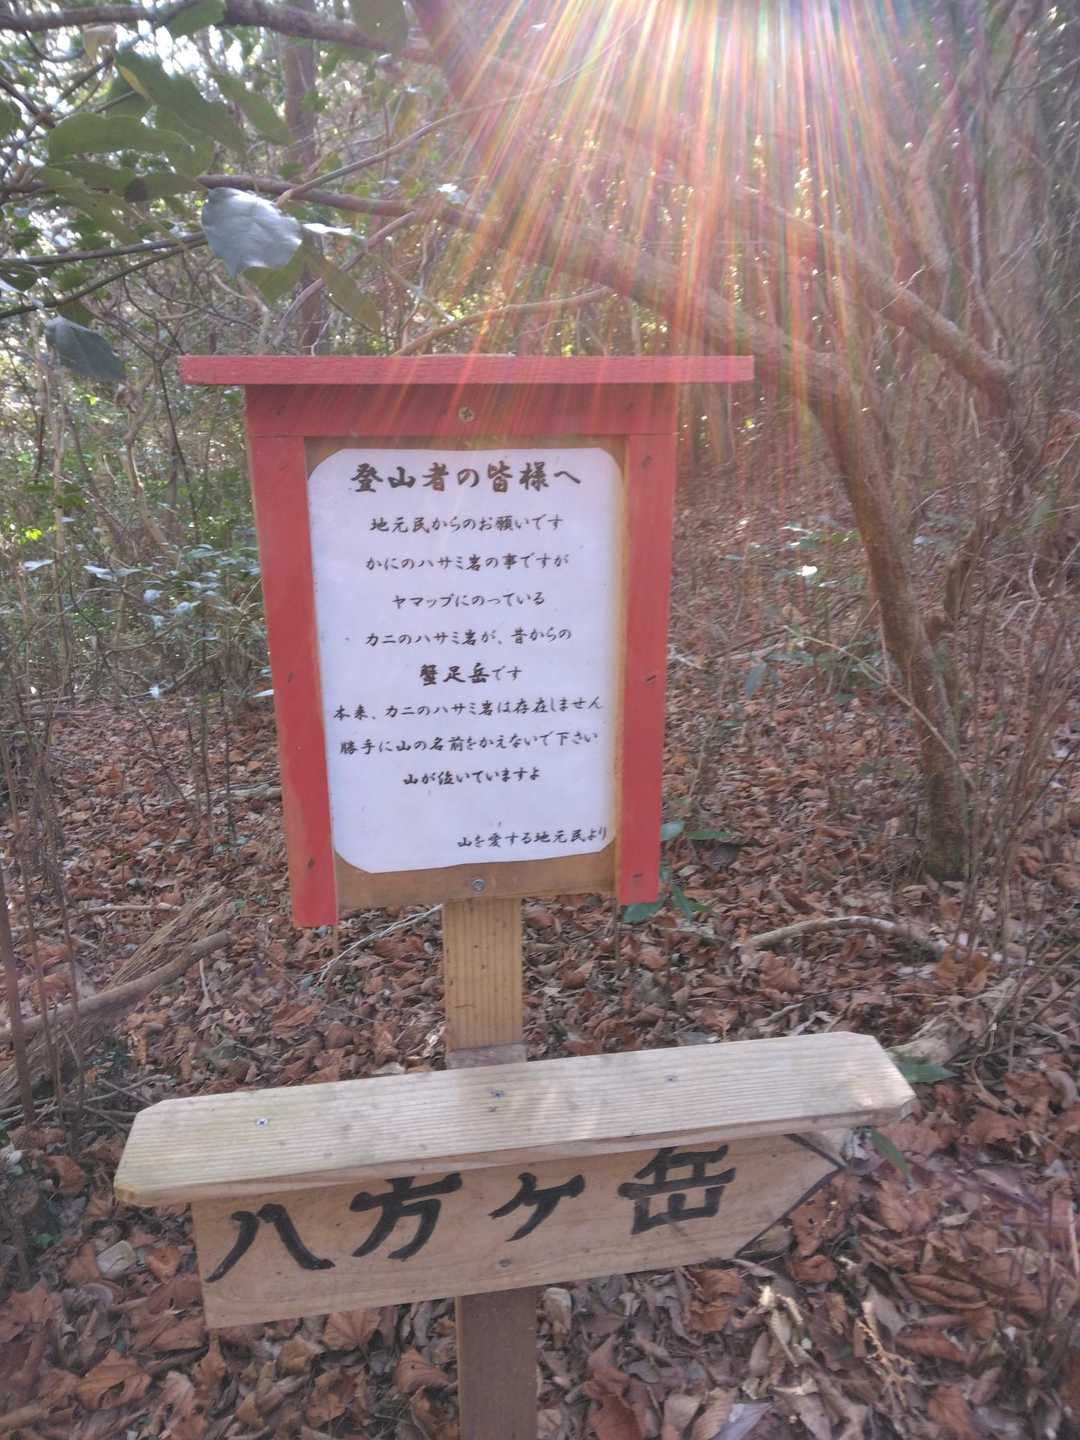 登山者の皆様へ
地元民からのお願いです
かにのハサミ岩の事ですが
ヤマップにのっている
カニのハサミ岩が、昔からの
蟹足岳です
本来、カニのハサミ岩は存在しません
勝手に山の名前をかえないで下さい
山が泣いていますよ
山を愛する地元民より
八方ヶ岳